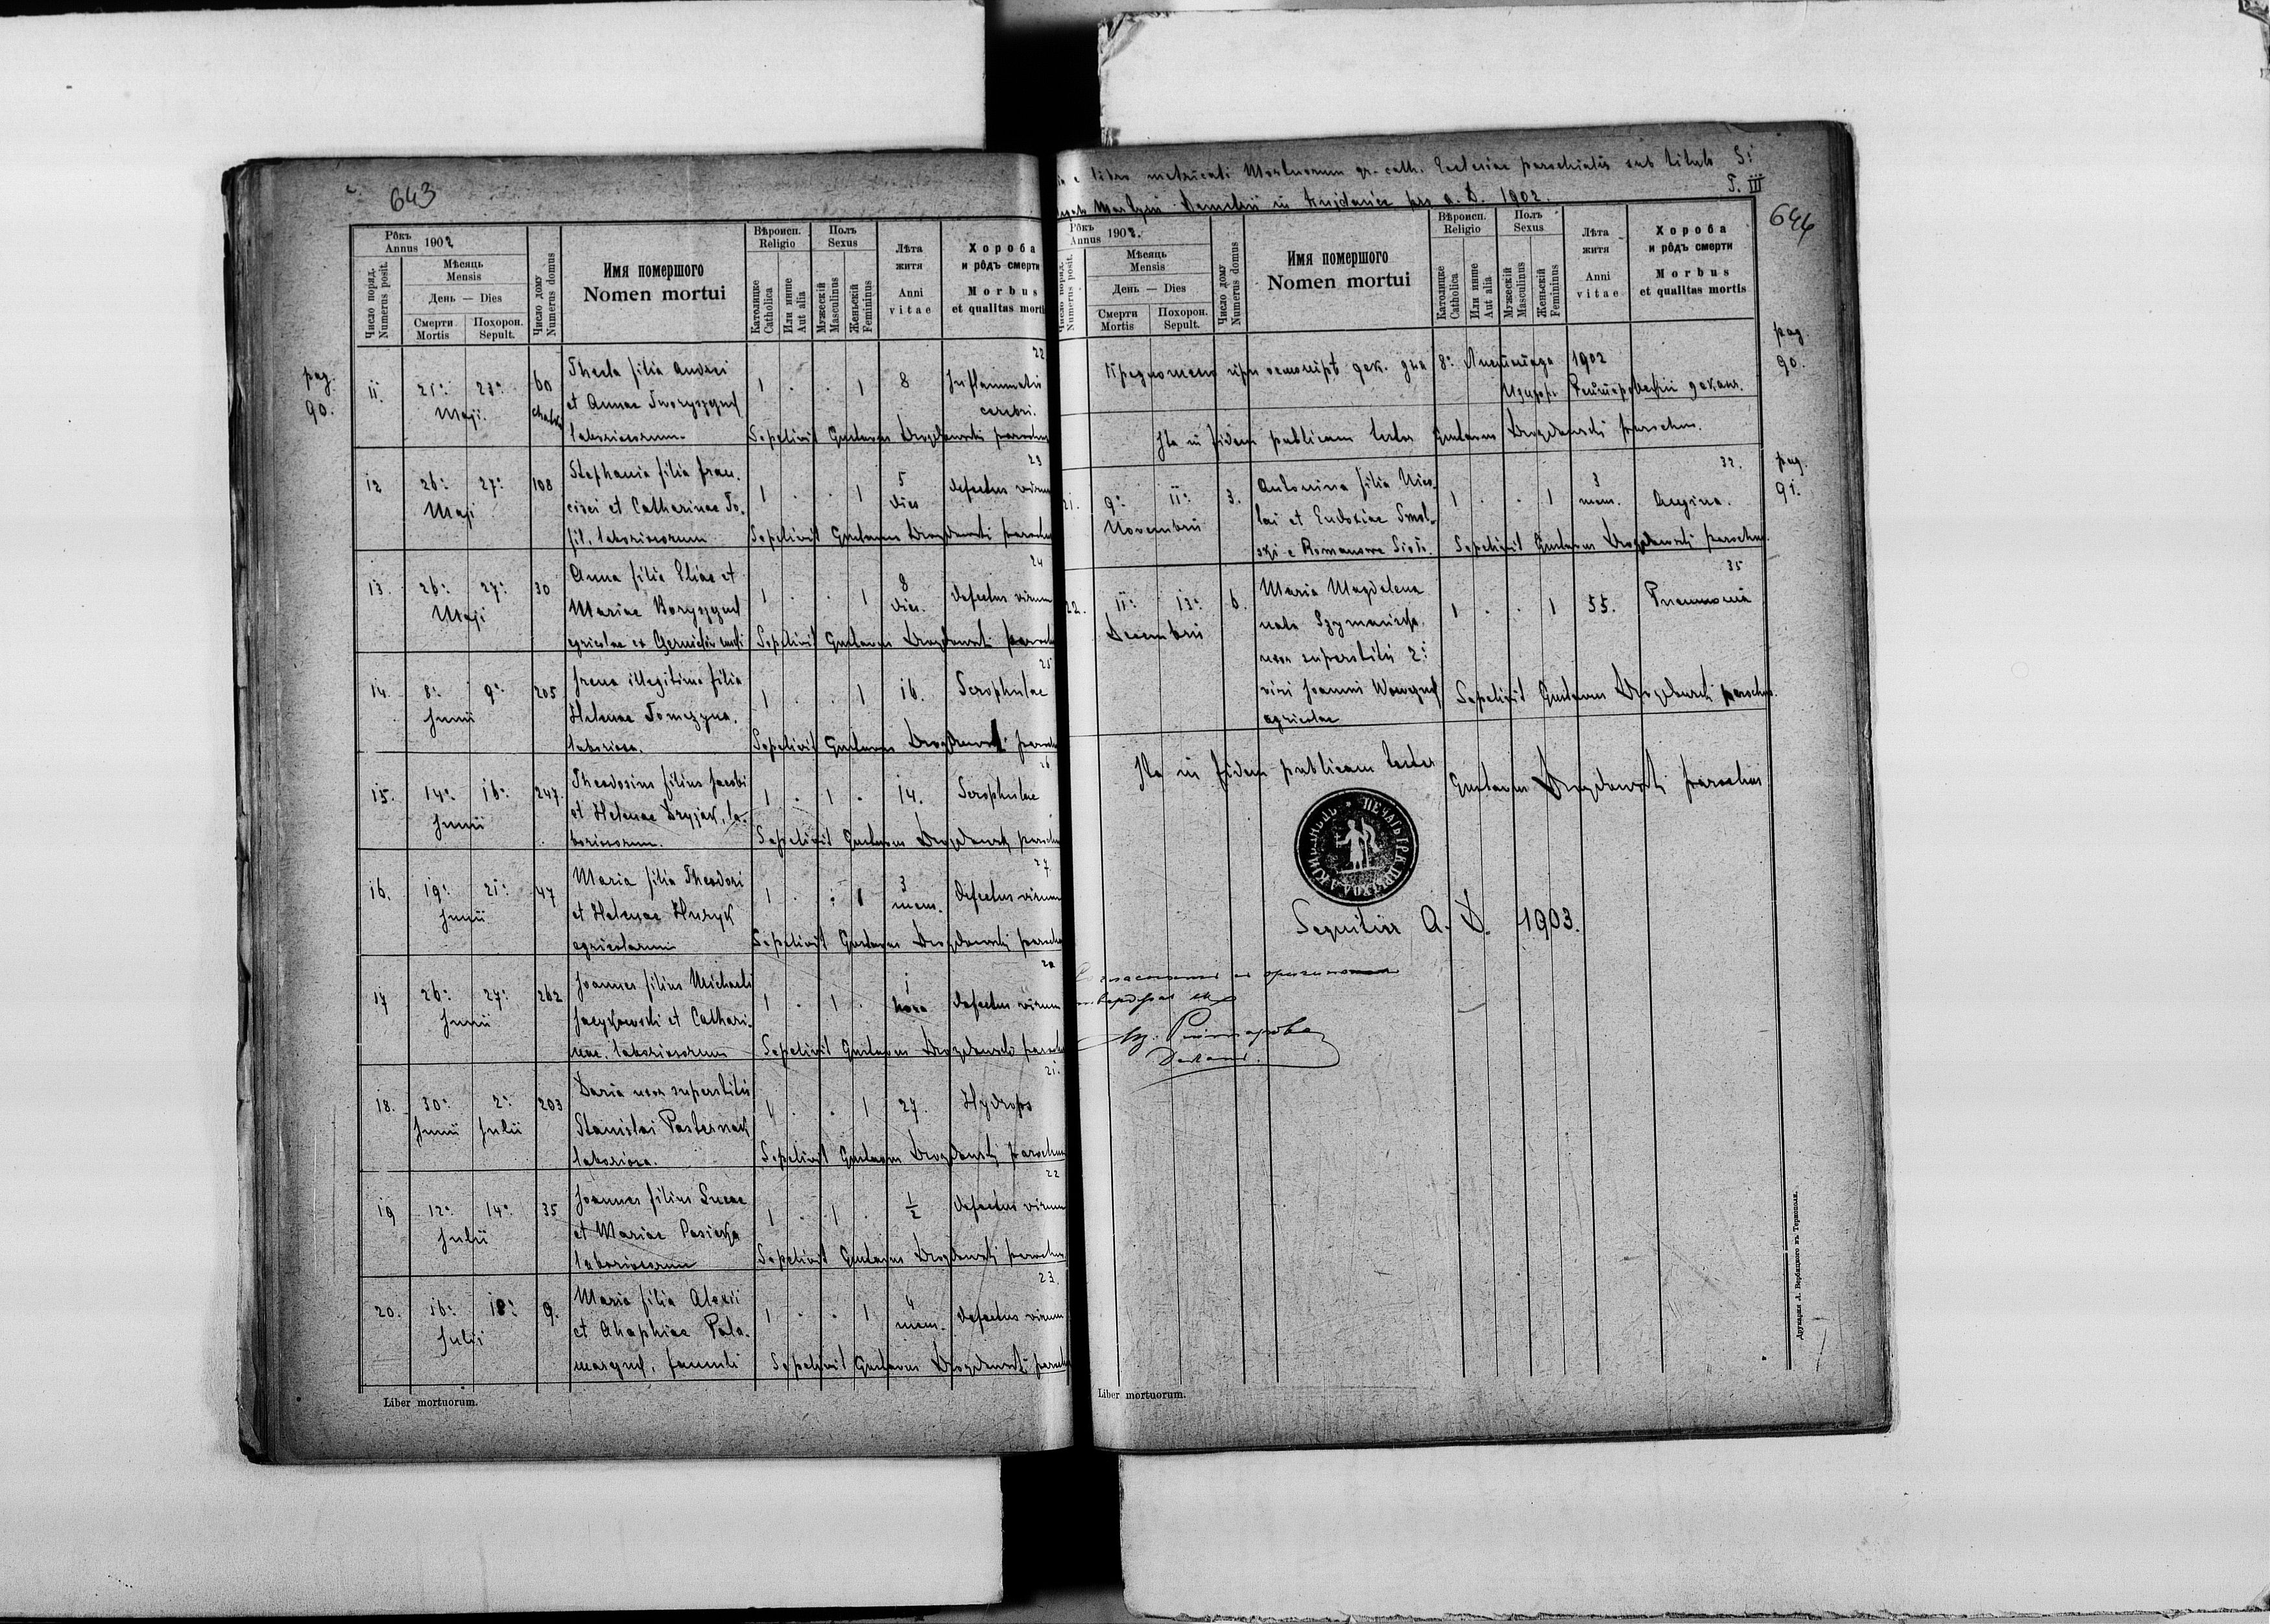 643
Рôкъ
Annus 1902
Число поряд.
Numerus posit.
Мѣсяць
Mensis
День — Dies
Смерти
Mortis
Похорон.
Sepult.
Число дому
Numerus domus
Имя помершого
Nomen mortui
Вѣроисп.
Religio
Католицке
Catholica
Или инше
Aut alia
Полъ
Sexus
Мужескій
Masculinus
Женьскій
Femininus
Лѣта
житя
Anni
vitae
Хороба
и рôдъ смерти
Morbus
et qualitas mortis
pag.
90.
11. 21. 23. Maji. 60 Thecla filia Andrei 1 . . 1 8 Inflammatio 22
et Annae cerebri.
laboriosorum Sepelivit Gustavus Drozdowski parochus
12 26. 27. Maji 108 Stephania filia Fran- 1 . . 1 5 dies defectus virium 23
cisci et Catharinae To-
fil, laboriosorum Sepelivit Gustavus Drozdowski parochus
13. 26. 27. Maji 30 Anna filia Eliae et 1 . . 1 8 dies. defectus virium 24
Mariae
agricolae ex Sepelivit Gustavus Drozdowski parochus
14. 8. 9. Junii 205 Irena illegitima filia 1 . . 1 16. Scrophulae 25
Helenae
laboriosa. Sepelivit Gustavus Drozdowski parochus
15. 14. 16. Junii 247. Theodosius filius Jacobi 1 . 1 . 14. Scrophulae 26
et Helenae Dryjak, la-
boriosorum. Sepelivit Gustavus Drozdowski parochus
16. 19. 21. Junii 47 Maria filia Theodori 1 . . 1 3 mens. defectus virium 27
et Helenae Huryk
agricolarum Sepelivit Gustavus Drozdowski parochus
17 26. 27. Junii 262 Joannes filius Michaeli 1 . 1 . 1 hora defectus virium
et Cathari-
nae, laboriosorum Sepelivit Gustavus Drozdowski parochus
18. 30. Junii 2. Julii 203 Daria uxor superstitis 1 . . 1 27. Hydrops 21.
Stanislai Pasternak
laboriosa. Sepelivit Gustavus Drozdowski parochus
19 12. 14. Julii 35 Joannes filius Lucae 1 . 1 . 1/2 defectus virium 22
et Mariae Pasieka
laboriosorum Sepelivit Gustavus Drozdowski parochus
20. 16. 18. Julii 9. Maria filia Alexii 1 . . 1 4 mens. defectus virium 23.
et Ahaphiae Pala-
marczuk, famuli Sepelivit Gustavus Drozdowski parochus
Liber mortuorum.
e libro metricali Mortuorum gr. cath. Ecclesiae parochialis sub titulo S:
Martyris Demetrii in pro a. D. 1902. T. III
644
Рôкъ
Annus 1902.
Число поряд.
Numerus posit.
Мѣсяць
Mensis
День — Dies
Смерти
Mortis
Похорон.
Sepult.
Число дому
Numerus domus
Имя помершого
Nomen mortui
Вѣроисп.
Religio
Католицке
Catholica
Или инше
Aut alia
Полъ
Sexus
Мужескій
Masculinus
Женьскій
Femininus
Лѣта
житя
Anni
vitae
Хороба
и рôдъ смерти
Morbus
et qualitas mortis
pag.
90.
при дек. дня 8. Листопада 1902
декан.
Ita in fidem publicam testor Gustavus Drozdowski parochus.
pag.
91.
21. 9. 11. Novembris 3. Antonina filia Nico- 1 . . 1 3 mens. Angina. 32.
lai et Eudoxiae Smol-
ski e Romanowe Sioło. Sepelivit Gustavus Drozdowski parochus.
22. 11. 13. Decembris 6. Maria Magdalena 1 . . 1 55. Pneumonia 35
nata
uxor superstitis 2.
viri Joannis Sepelivit Gustavus Drozdowski parochus.
agricolae
Ita in fidem publicam testor Gustavus Drozdowski parochus
Sequitur A. D. 1903.
Декан.
Друкарня Л. Вербицкого въ Тернополи.
Liber mortuorum.